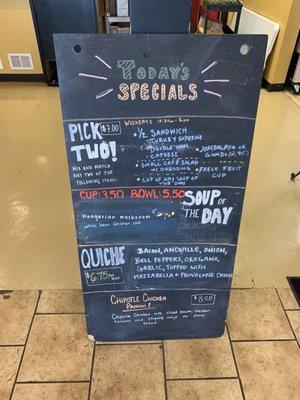 TODAYS
SPECIALS
PICK $7.00
TWO!
MIX AND MATCH
ANY TWO OF THE
FOLLOWING ITEMS
WEEKDAYS
1/2 SANDWICH
TURKEY SUPREME
HAM
CAPRESE
SMALL CAFE SALAD
W/ DRESSING
CUP OF ANY SOUP OF
THE DAY
JAMBALAYA OR
GUMBO
FRESH FRUIT
CUP
CUP 3.50 BOWL 5.50
SOUP OF
THE DAY
Hungarian mushroom
White bean Chicken Chili
QUICHE
$6.75
BACON, ANDOUILLE, ONION,
BELL PEPPERS, OREGANO,
GARLIC, TOPPED WITH
MOZZARELLA + PROVOLONE CHEESE
CHIPOTLE CHICKEN
PANINI!
Chipotle Chicken with sliced bacon, cheddar
tomato and Chipotle mayo on panini
bread